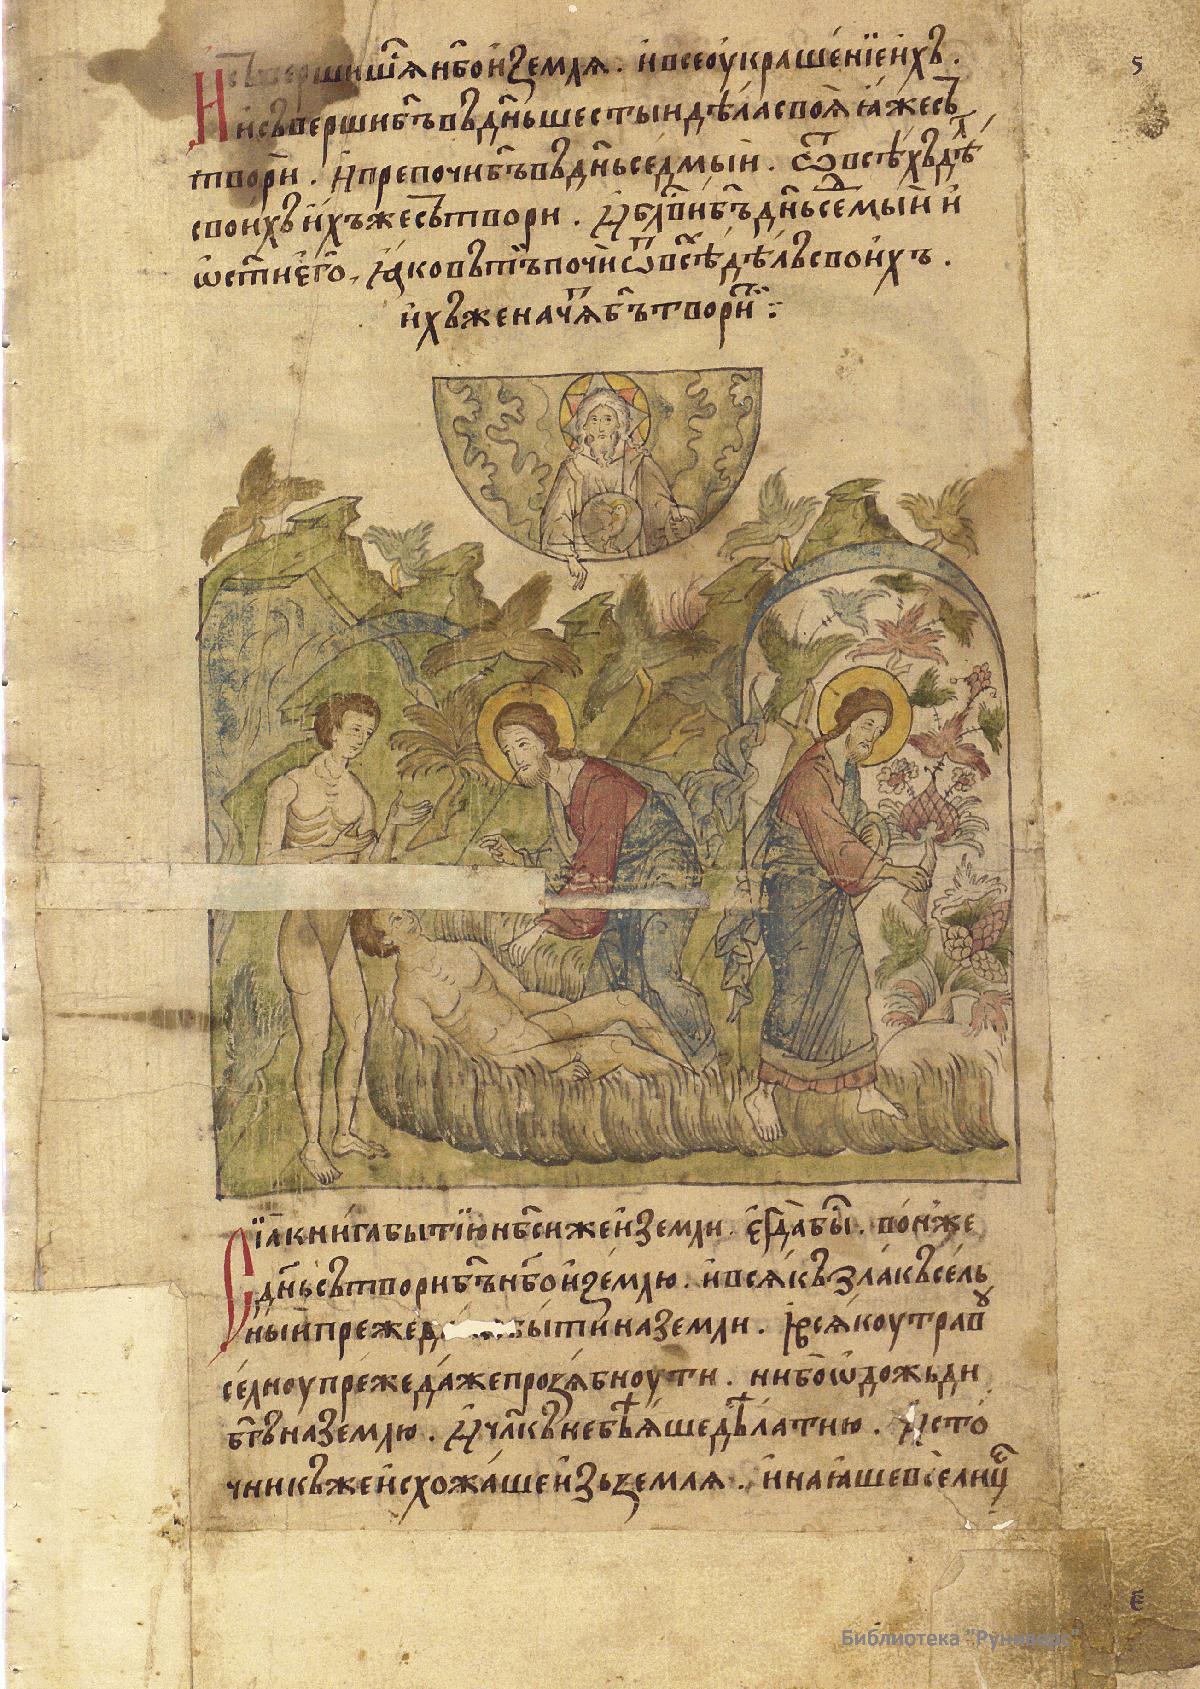 И съвершишѧ нбо и земля. и все оукрашенїе ихъ.
5
и съверши бгъ въ днь шестыи дѣла своя ꙗже съ
твори. И препочи бгъ въ днь седмыи. ѿ всѣхъ дѣл
своихъ ихъже сътвори. И блви бгъ днь семыи и
ѡсти его, ꙗко въ тъ почи ѿ всѣ дѣлъ своихъ.
ихъже начѧ бгъ творити :
Сїꙗ книга бытїю нбси же и земли. егда бы. понже
днь сътвори бгъ нбо и землю. и всякъ злакъ сель
ныи преже быти на земли. И всякоу травꙋ
селноу преже даже прозябноути. ни бо ѡдожьди
бгъ на землю. И члкъ не бѣяше дѣлати ю. Исто
чникъ же исхожаше изъ земля. и напаꙗше все лице
є
Библиотека "Руниверс"